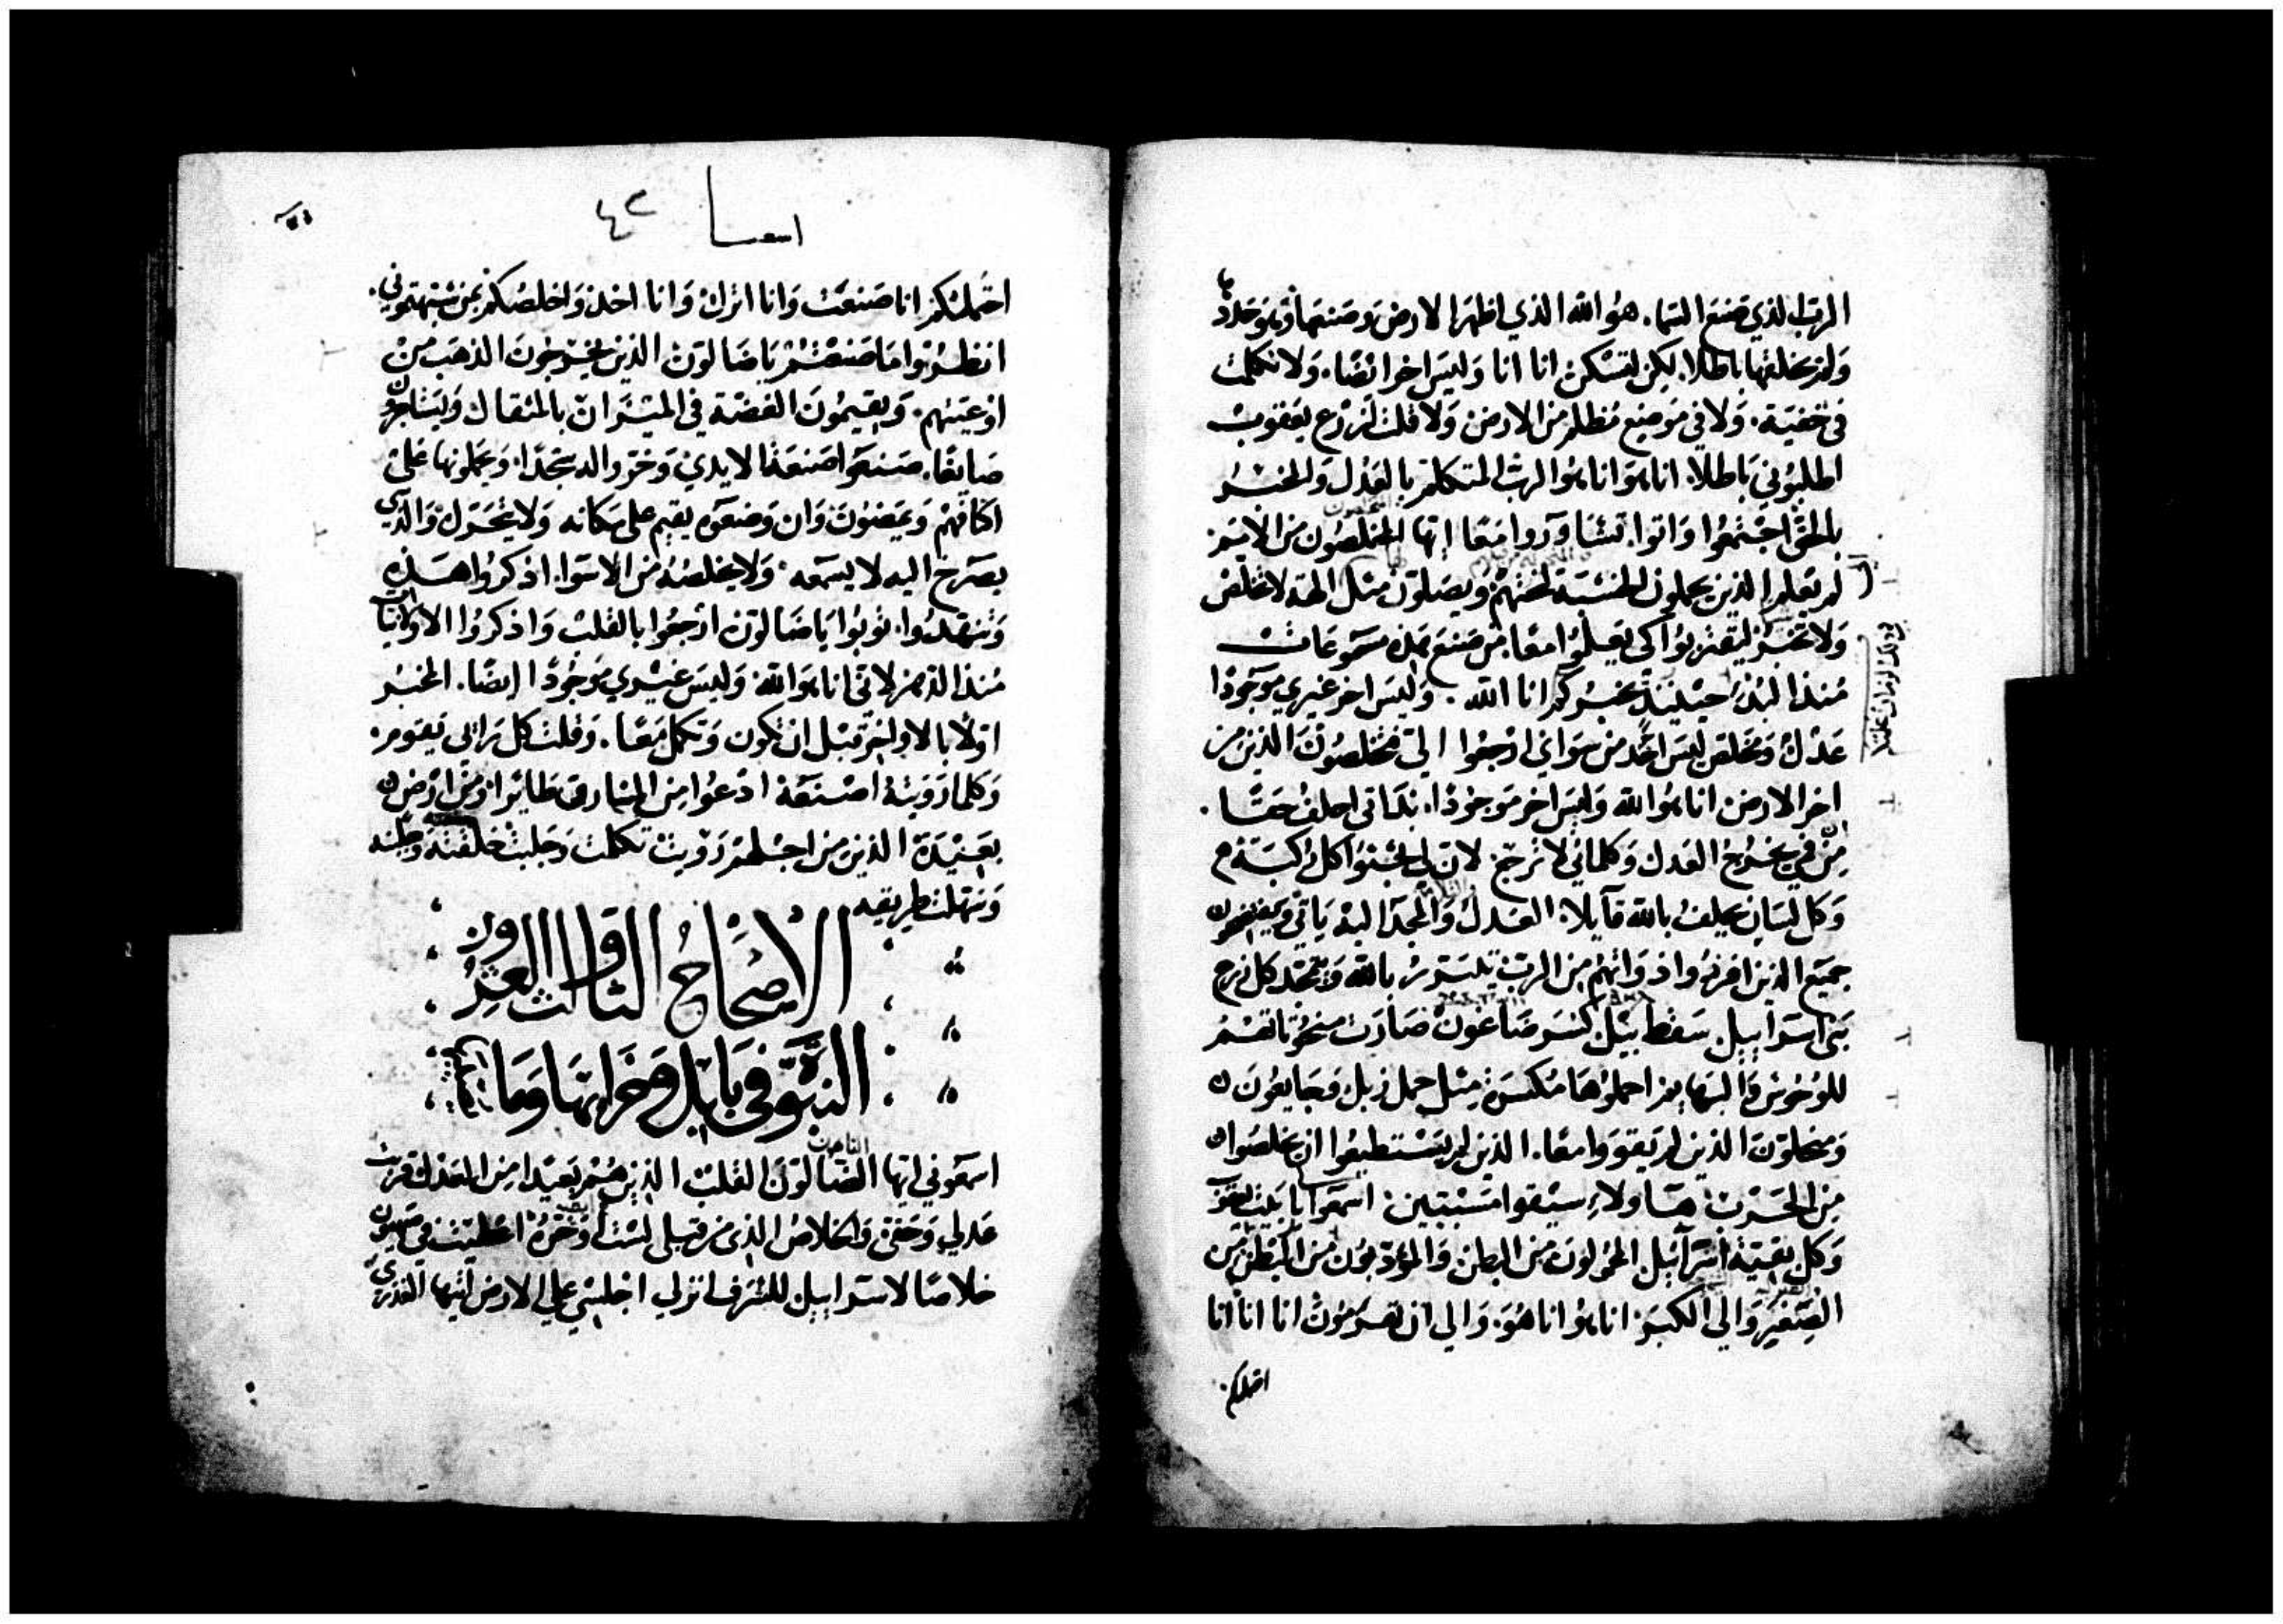 الرب الذي صنع السما. هو الله الذي اظهر الارض وصنعها وهو حددها
ولم يخلقها باطلا. لكن لتسكن انا انا وليس اخر ايضا. ولا تكلمت
في خفية. ولا في موضع مظلم من الارض ولا قلت لزرع يعقوب
اطلبوني باطلا. انا هو انا هو الرب المتكلم بالعدل والمخبر
بالحق اجتمعوا واتوا. تشاوروا معا ايها المخلصون من الامم
لم يعلم الذين يحملون الخشبة نحتهم ويصلون مثل الهة لا تخلص
ولا تخبر ليقتربوا كي يعلموا معا. من صنع هذه مسموعات
منذ البدء حينيذ يخبركم انا الله. وليس اخر غيري موجودا
عدل ومخلص ليس احد من سواي ارجعوا الي فتخلصون الذين من
اخر الارض. انا هو الله وليس اخر موجودا. بذاتي احلف حقا.
من في يخرج العدل وكلماتي لا ترجع. لان لي تجثوا كل ركبة
وكل لسان يحلف بالله قايلا. العدل والمجد اليه ياتي ويفتضحون
جميع الذين افرزوا ذواتهم من الرب يتبرر بالله ويتمجد كل زرع
بني اسراييل سقط بيل كسر ضاغون صارت منحوتاتهم
للوحوش والبهايم احملوها مكسرة مثل حمل ذبل وجايعون
ومحلون الذين لم يقووا معا. الذين لم يستطيعوا ان يخلصوا
من الحرب هاولاء سيقوا مسبيين. اسمعوا يا بيت يعقوب
وكل بقية اسراييل المحمولون من البطن والمودبون من البطن من
الصغير والى الكبر. انا هو انا هو. والي ان تهرمون انا انا انا
احملكم
اسعيا ٤٢
احتملتكم انا صنعت وانا اترك وانا اخذ واخلصكم بمن شبهتموني.
انظروا ما صنعتم يا ضالون الذين يخرجون الذهب من
اوعيتهم. ويقيمون الفضة في الميزان بالمثقال ويستاجرون
صايغا. صنعوا صنعة الايدي وخروا له سجدا. ويحملونها على
اكتافهم ويمضون وان وضعوه يقيم على مكانه ولا يتحرك والذي
يصرخ اليه لا يسمعه. ولا يخلصه من الاسوا. اذكروا هذه
وتنهدوا. توبوا يا ضالون ارجعوا بالقلب واذكروا الاوليات
منذ الدهر لاني انا هو الله وليس غيري موجودا ايضا. المخبر
اولا بالاواخر قبل ان تكون وتكمل معا. وقلت كل رايي يقوم.
وكلما رويته اصنعه ادعوا من المشارق طايرا. ومن ارض
بعيدة الذين من اجلهم رويت تكلمت وجلبت خلقته وجبته
وسهلت طريقه
الاصحاح الثالث والعشرون
النبوة في بابل وخرابها وما
اسمعوني ايها الضالون القلب الذين هم بعيدا من العدل قربت
عدلي وحقي والخلاص الذي من قبلي لست اوخره اعطيت في صهيون
خلاصا لاسراييل للشرف انزلي اجلسي علي الارض ايتها العذري